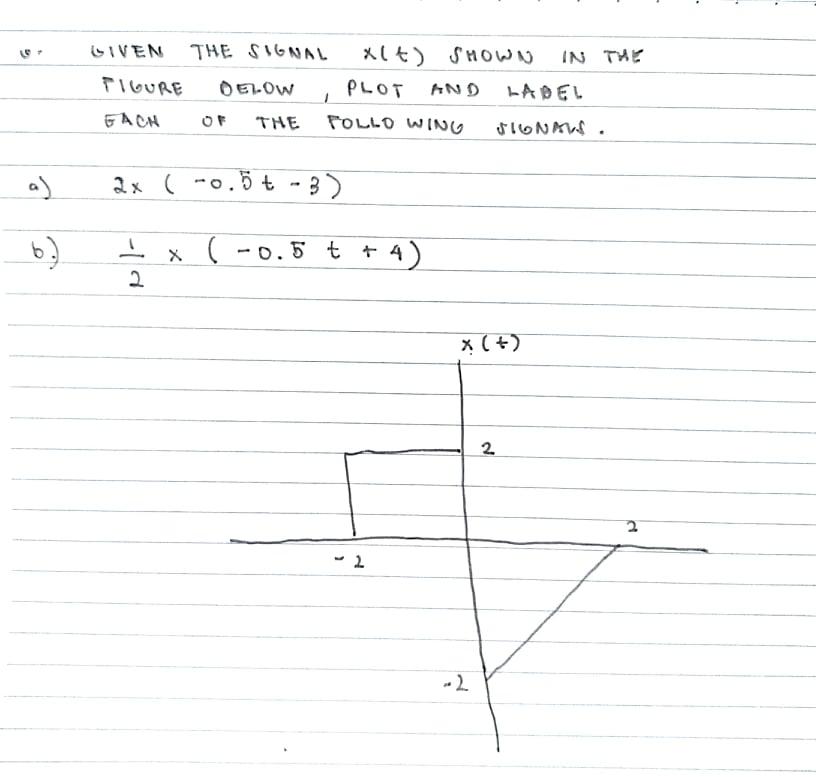 GIVEN THE SIGNAL x(t) SHOWN IN THE
FIGURE BELOW, PLOT AND LABEL
EACH OF THE FOLLOWING SIGNALS.
a) 2x (-0.5t - 3)
b) 1/2 x (-0.5 t + 4)
x(t)
2
2
-2
-2